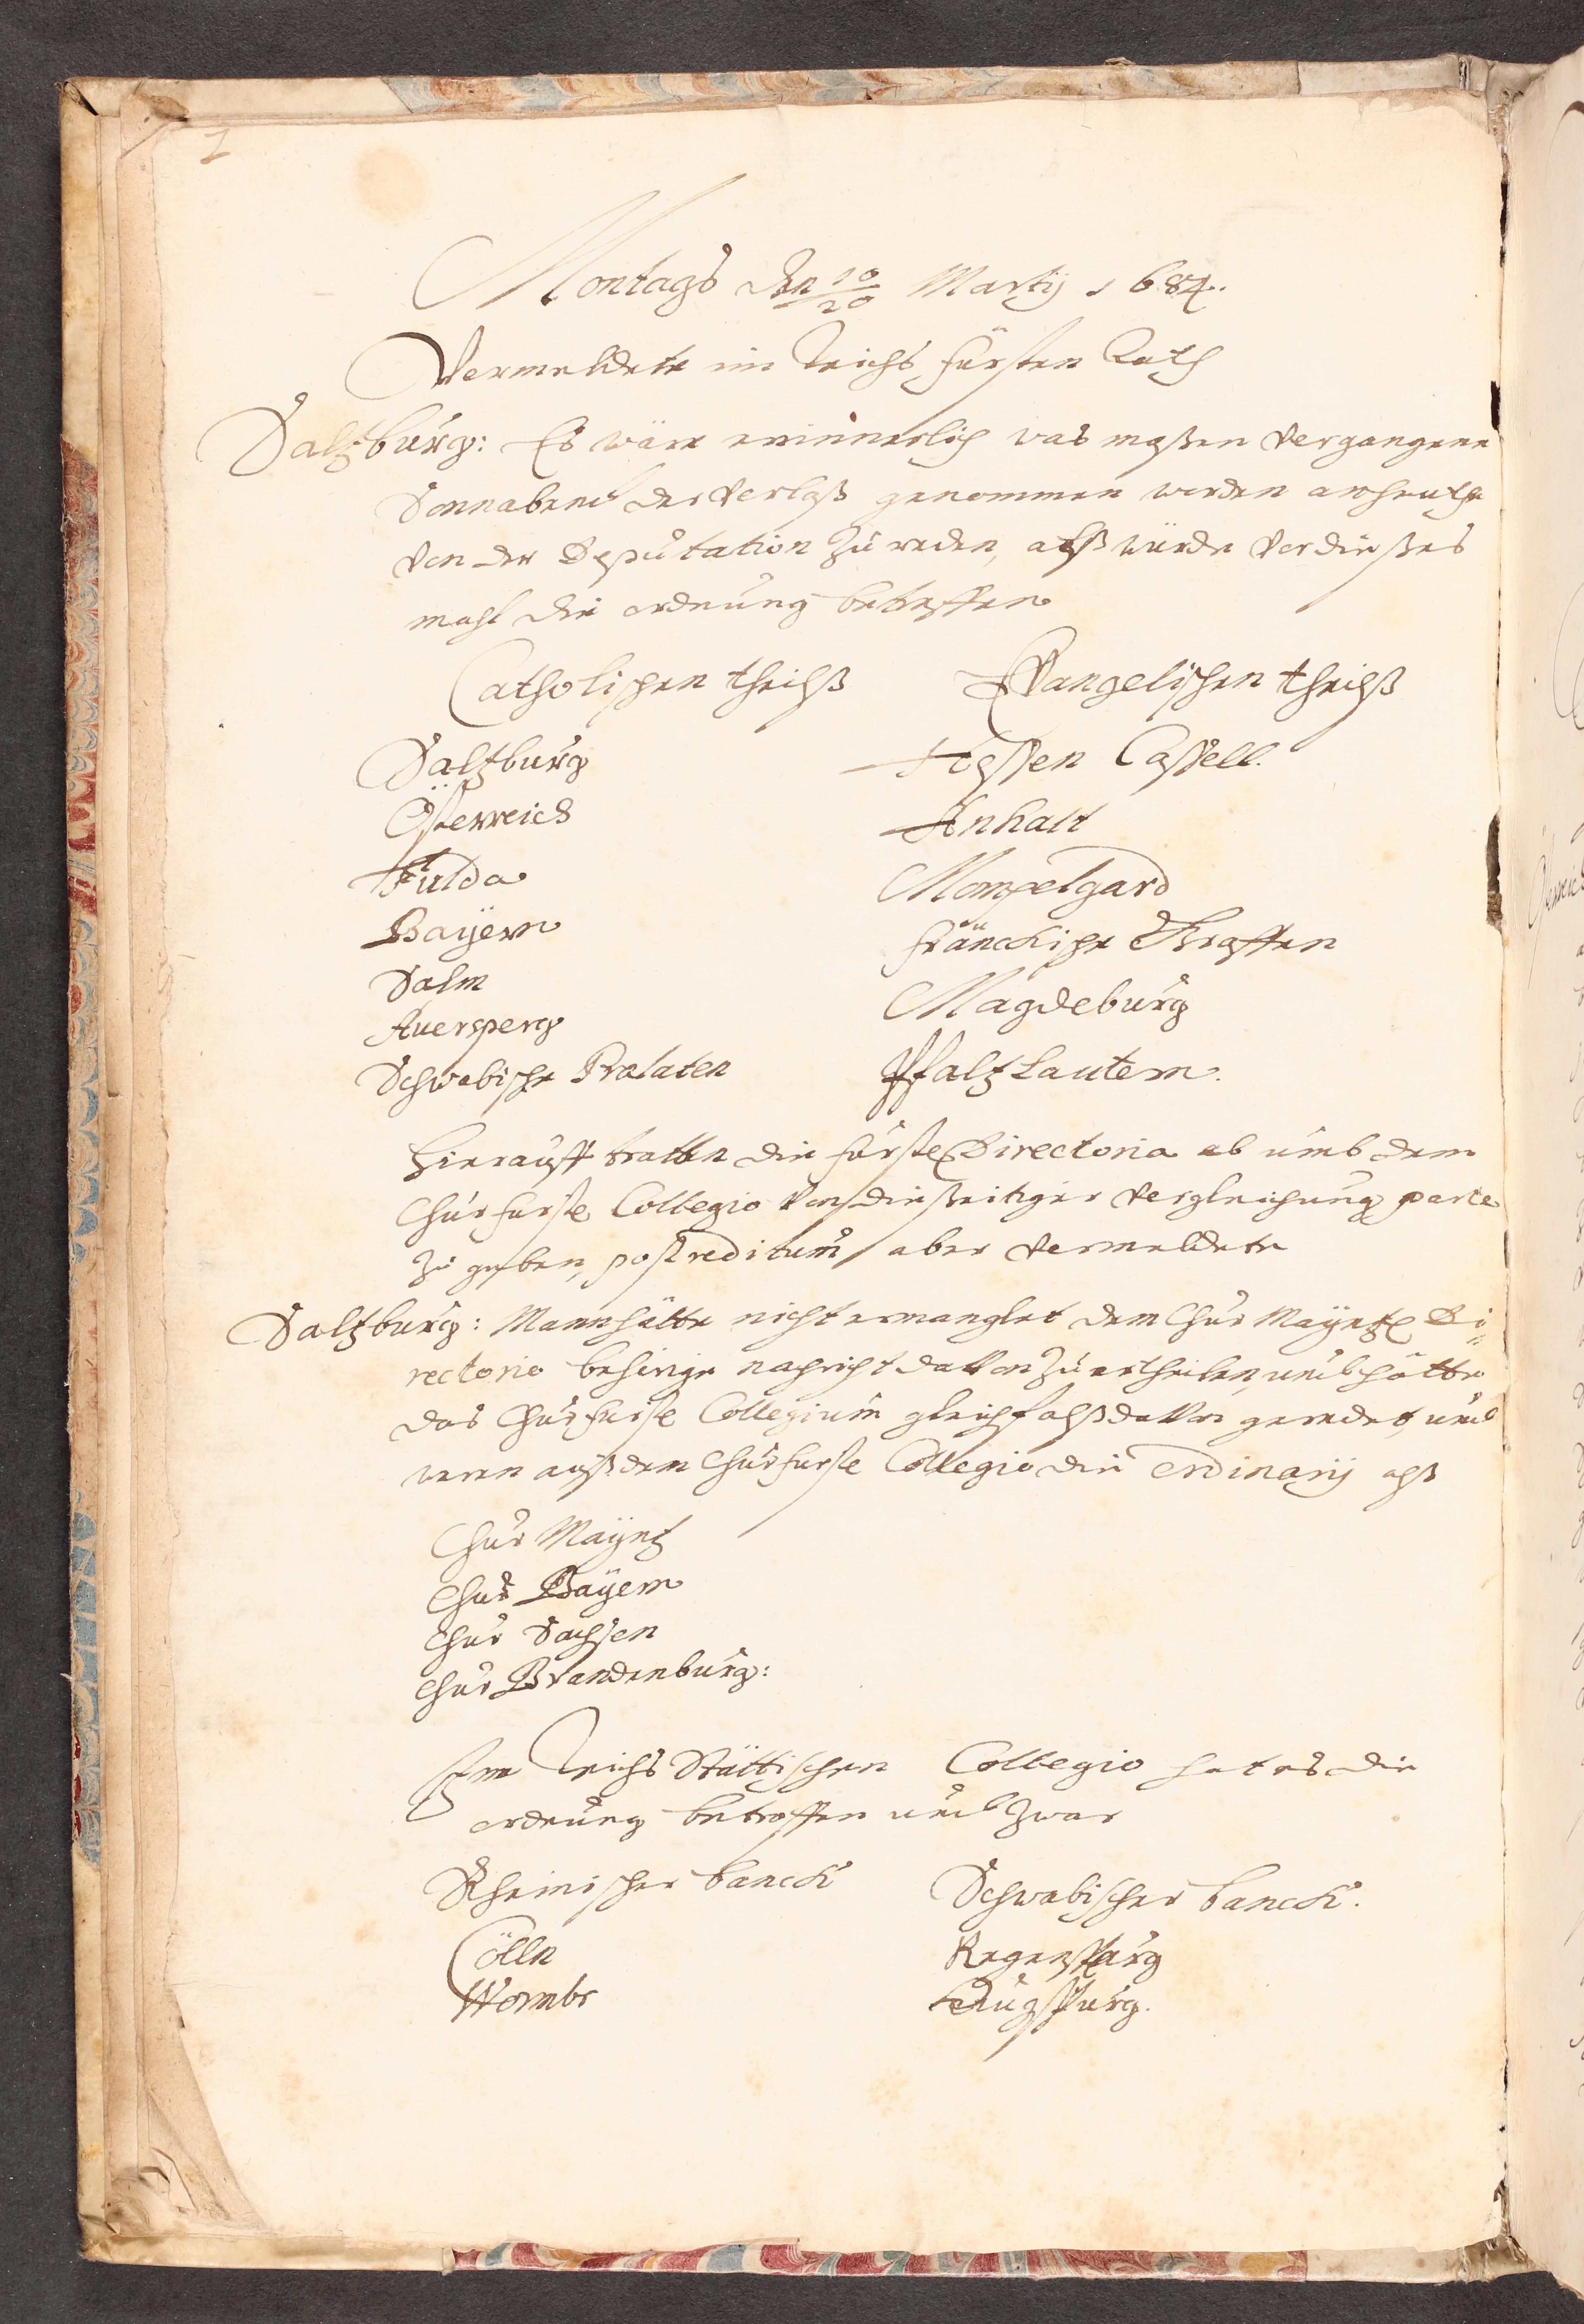 1
Montags den 10/20 Martij 1684.
Vermeldete im Reichs Fürsten Rath
Saltzburg: Es wäre erinnerlich was maßen vergangenen
Sonnabend der Verlaß genommen worden anheuthe
von der Deputation zu reden, alß würde vor dießes
mahl die ordnung betreffen
Catholischen theilß
Evangelischen theilß
Saltzburg
Hessen Cassell.
Österreich
Anhalt
Fulda
Mompelgard
Bayern
fränckische Graffen
Salm
Magdeburg
Auersperg
Pfaltz Lautern.
Schwabische Prälaten
Hierauff tratten die fürstl Directoria ab umb dem
Churfürstl Collegio von dießeitiger Vergleichung parte
zu geben, post reditum aber vermeldete
Saltzburg: Mann hätte nicht ermanglet dem Chur Mayntz Di
rectorio behörige nachricht davon zu ertheilen, und hätte
das Churfürstl Collegium gleichfalß davon geredet und
weren auß dem Churfürstl Collegio die ordinarij alß
Chur Mayntz
Chur Bayern
Chur Sachsen
Chur Brandenburg:
Im Reichs Stättischen Collegio hat es die
ordnung betroffen und zwar
Rheinischer banck
Schwabischer banck.
Cölln
Regenspurg
Wormbs
Augspurg.